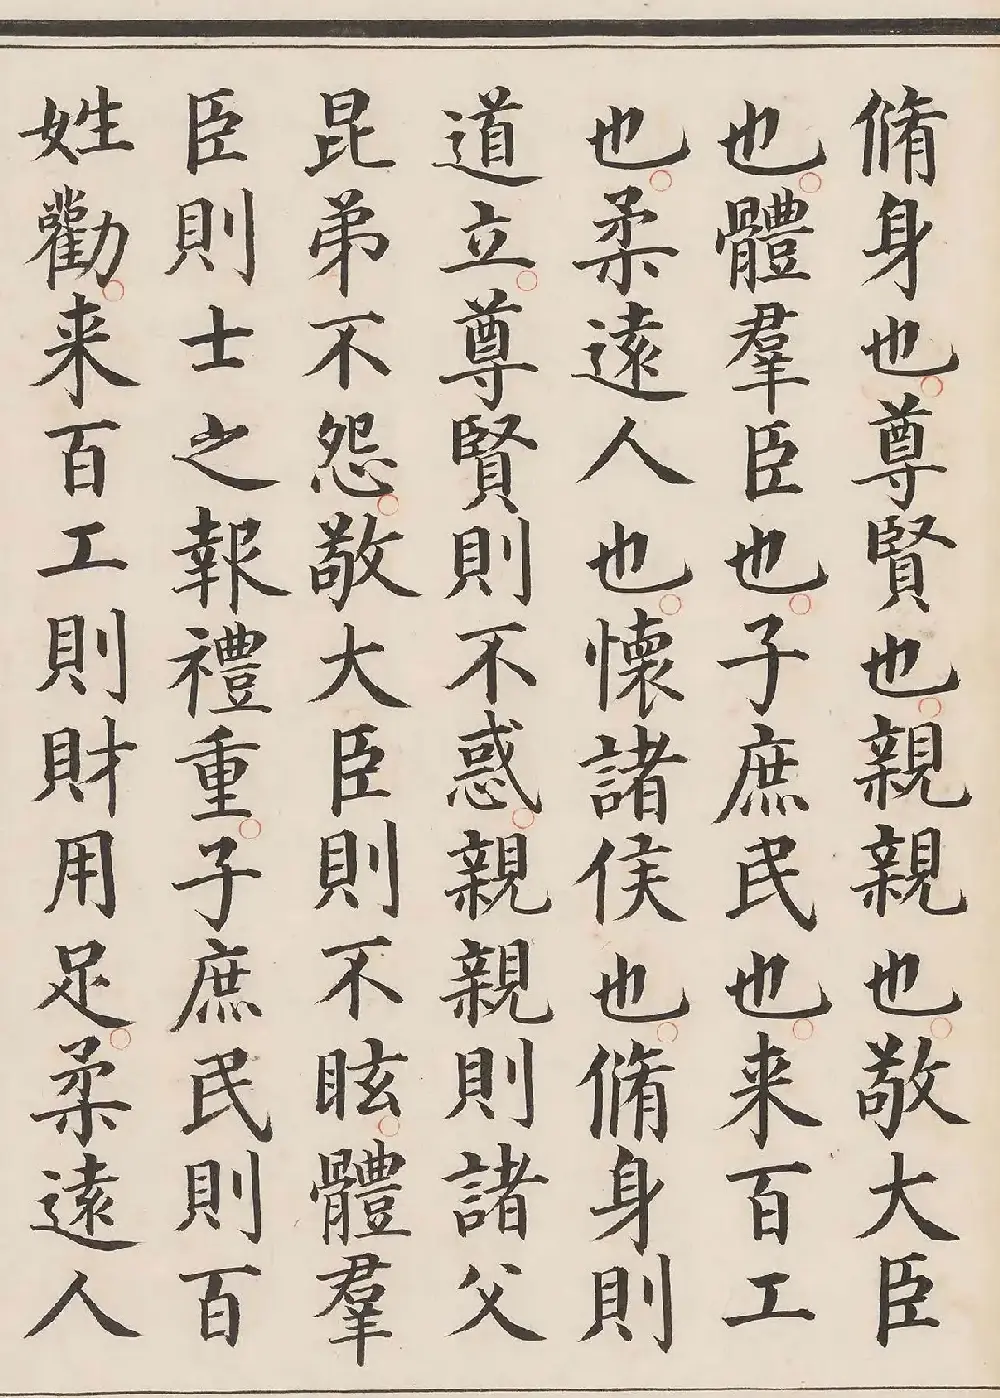 脩身也○尊賢也○親親也○敬大臣
也○體羣臣也○子庶民也○来百工
也○柔遠人也○懷諸侯也○脩身則
道立○尊賢則不惑○親親則諸父
昆弟不怨○敬大臣則不眩○體羣
臣則士之報禮重○子庶民則百
姓勸○来百工則財用足○柔遠人